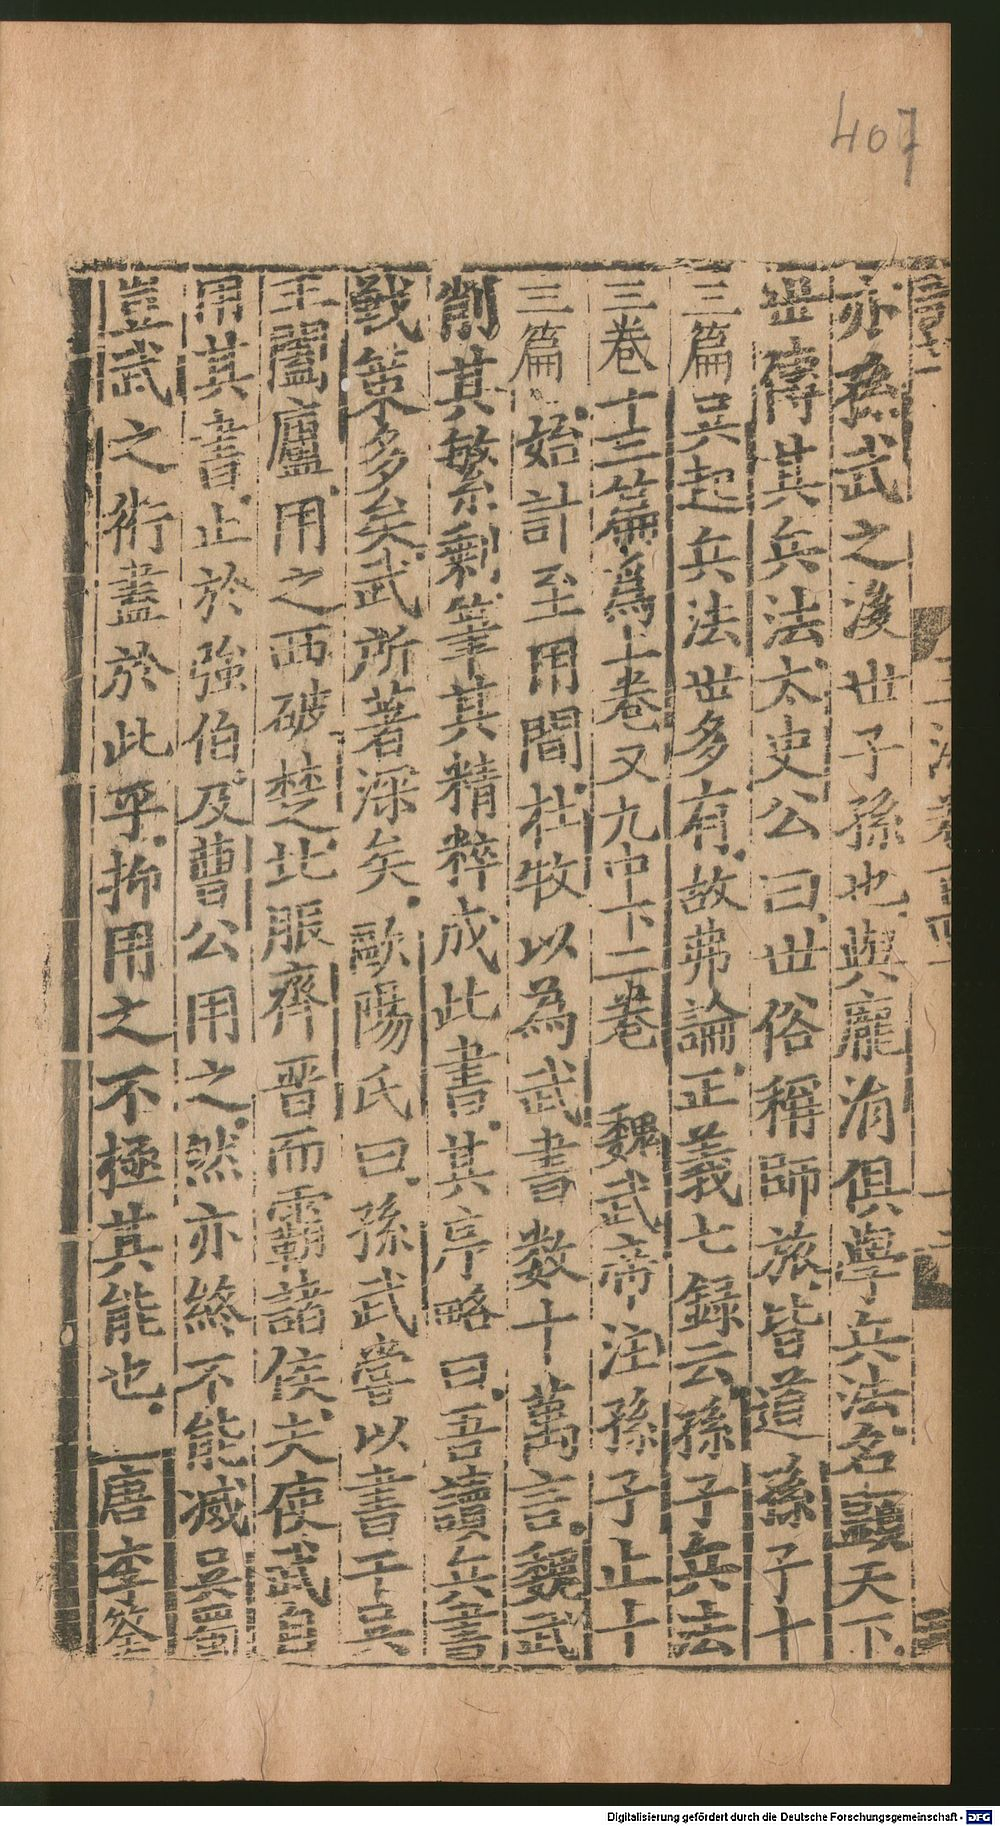 407
亦孫武之後世子孫也與龐涓俱學兵法名顯天下
世傳其兵法太史公曰世俗稱師旅皆道孫子十
三篇吳起兵法世多有故弗論正義七錄云孫子兵法
三卷十三篇為上卷又九中下二卷 魏武帝注孫子止十
三篇 始計至用間杜牧以為武書數十萬言魏武
削其繁剩筆其精粹成此書其序略曰吾讀兵書
戰策多矣武所著深矣歐陽氏曰孫武嘗以書干吳
王闔廬用之西破楚北服齊晉而霸諸侯夫使武自
用其書止於強伯及曹公用之然亦終不能滅吳蜀
豈武之術盡於此乎抑用之不極其能也 唐李筌
Digitalisierung gefördert durch die Deutsche Forschungsgemeinschaft - DFG